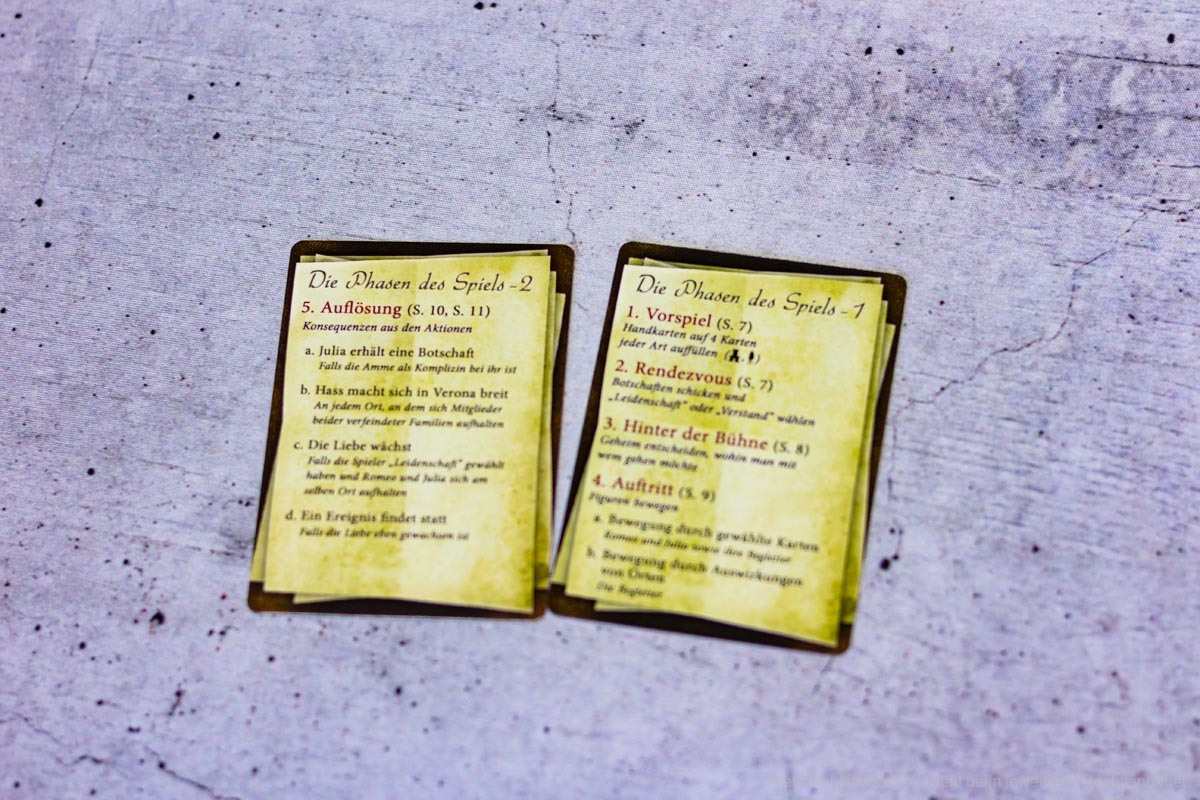 Die Phasen des Spiels - 2
5. Auflösung (S. 10, S. 11)
Konsequenzen aus den Aktionen
a. Julia erhält eine Botschaft
Falls die Amme als Komplizin bei ihr ist
b. Hass macht sich in Verona breit
An jedem Ort, an dem sich Mitglieder
beider verfeindeter Familien aufhalten
c. Die Liebe wächst
Falls die Spieler „Leidenschaft" gewählt
haben und Romeo und Julia sich am
selben Ort aufhalten
d. Ein Ereignis findet statt
Falls die Liebe eben gewachsen ist
Die Phasen des Spiels - 1
1. Vorspiel (S. 7)
Handkarten auf 4 Karten
jeder Art auffüllen ( , )
2. Rendezvous (S. 7)
Botschaften schicken und
„Leidenschaft" oder „Verstand" wählen
3. Hinter der Bühne (S. 8)
Geheim entscheiden, wohin man mit
wem gehen möchte
4. Auftritt (S. 9)
Figuren bewegen
a. Bewegung durch gewählte Karten
Romeo und Julia sowie ihre Begleiter
b. Bewegung durch Auswirkungen
von Orten
Die Begleiter